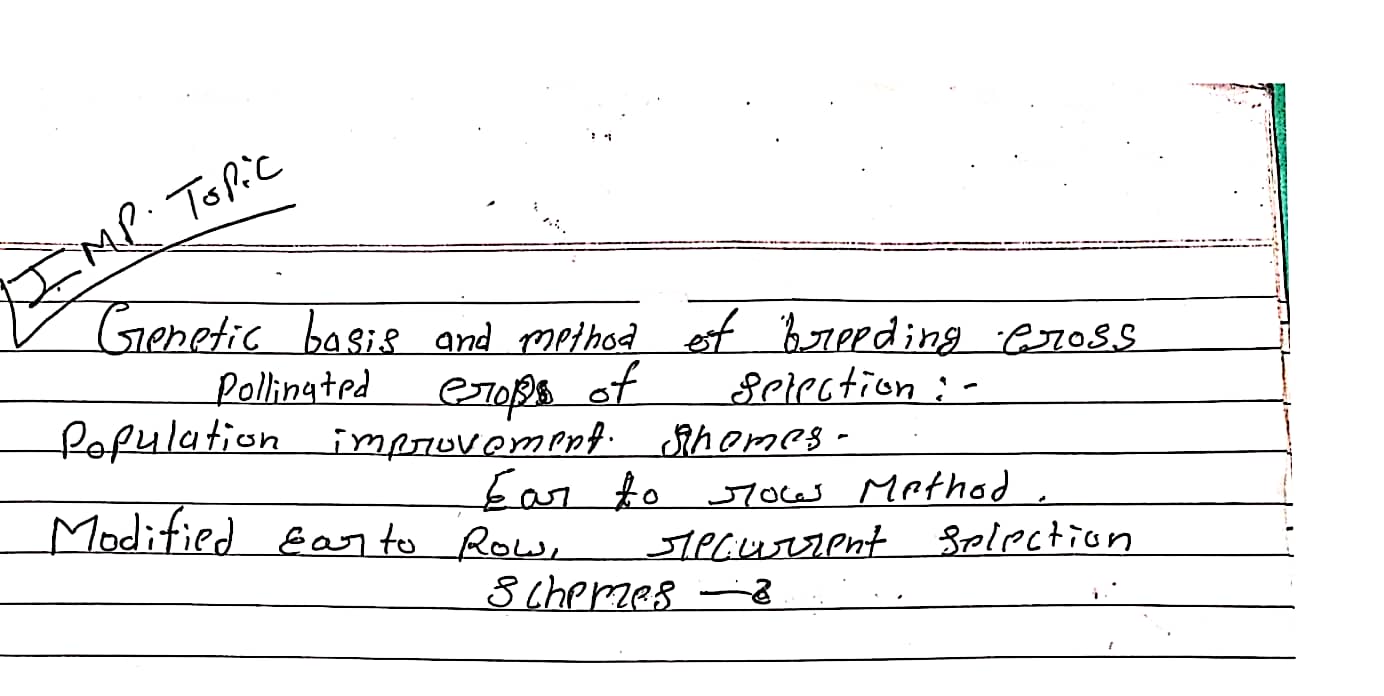 IMP. Topic
Genetic basis and method of breeding cross
Pollinated crops of selection :-
Population improvement. Shemes -
Ear to rows Method.
Modified Ear to Row, recurrent Selection
Schemes -: